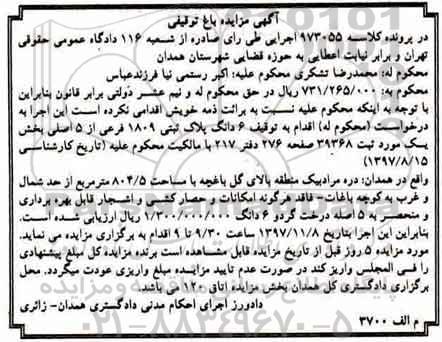 آگهی مزایده باغ توقیفی
در پرونده کلاسه ۹۷۳۰۵۵ اجرایی طی رای صادره از شعبه ۱۱۶ دادگاه عمومی حقوقی
تهران و برابر نیابت اعطایی به حوزه قضایی شهرستان همدان
محکوم له: محمدرضا تشکری محکوم علیه: اکبر رستمی نیا فرزندعباس
محکوم به: ۷۳۱/۲۶۵/۰۰۰ ریال در حق محکوم له و نیم عشر دولتی برابر قانون بنابراین
با توجه به اینکه محکوم علیه نسبت به برائت ذمه خویش اقدامی نکرده است این اجرا به
درخواست (محکوم له) اقدام به توقیف ۶ دانگ پلاک ثبتی ۱۸۰۹ فرعی از ۵ اصلی بخش
یک مورد ثبت ۳۹۳۶۸ صفحه ۲۷۶ دفتر ۲۱۷ با مالکیت محکوم علیه (تاریخ کارشناسی
۱۳۹۷/۸/۱۵)
واقع در همدان: دره مرادبیک منطقه بالای گل باغچه با مساحت ۸۰۴/۵ مترمربع از حد شمال
و غرب به کوچه باغات- فاقد هرگونه امکانات و حصارکشی و اشجار قابل بهره برداری
و منحصر به ۵ اصله درخت گردو ۶ دانگ ۱/۳۰۰/۰۰۰/۰۰۰ ریال ارزیابی شده است.
بنابراین این اجرا بتاریخ ۱۳۹۷/۱۱/۸ ساعت ۹/۳۰ تا ۹ اقدام به برگزاری مزایده می نماید
مورد مزایده ۵ روز قبل از تاریخ مزایده قابل مشاهده است برنده مزایده کل مبلغ پیشنهادی
را فی المجلس واریز کند در صورت عدم تایید مزایده مبلغ واریزی عودت میگردد. محل
برگزاری دادگستری کل همدان بخش مزایده اتاق ۱۲۰ می باشد.
دادورز اجرای احکام مدنی دادگستری همدان- زائری
م الف ۳۷۰۰
۰۲۱-۸۸۳۴۹۶۷۰-۵